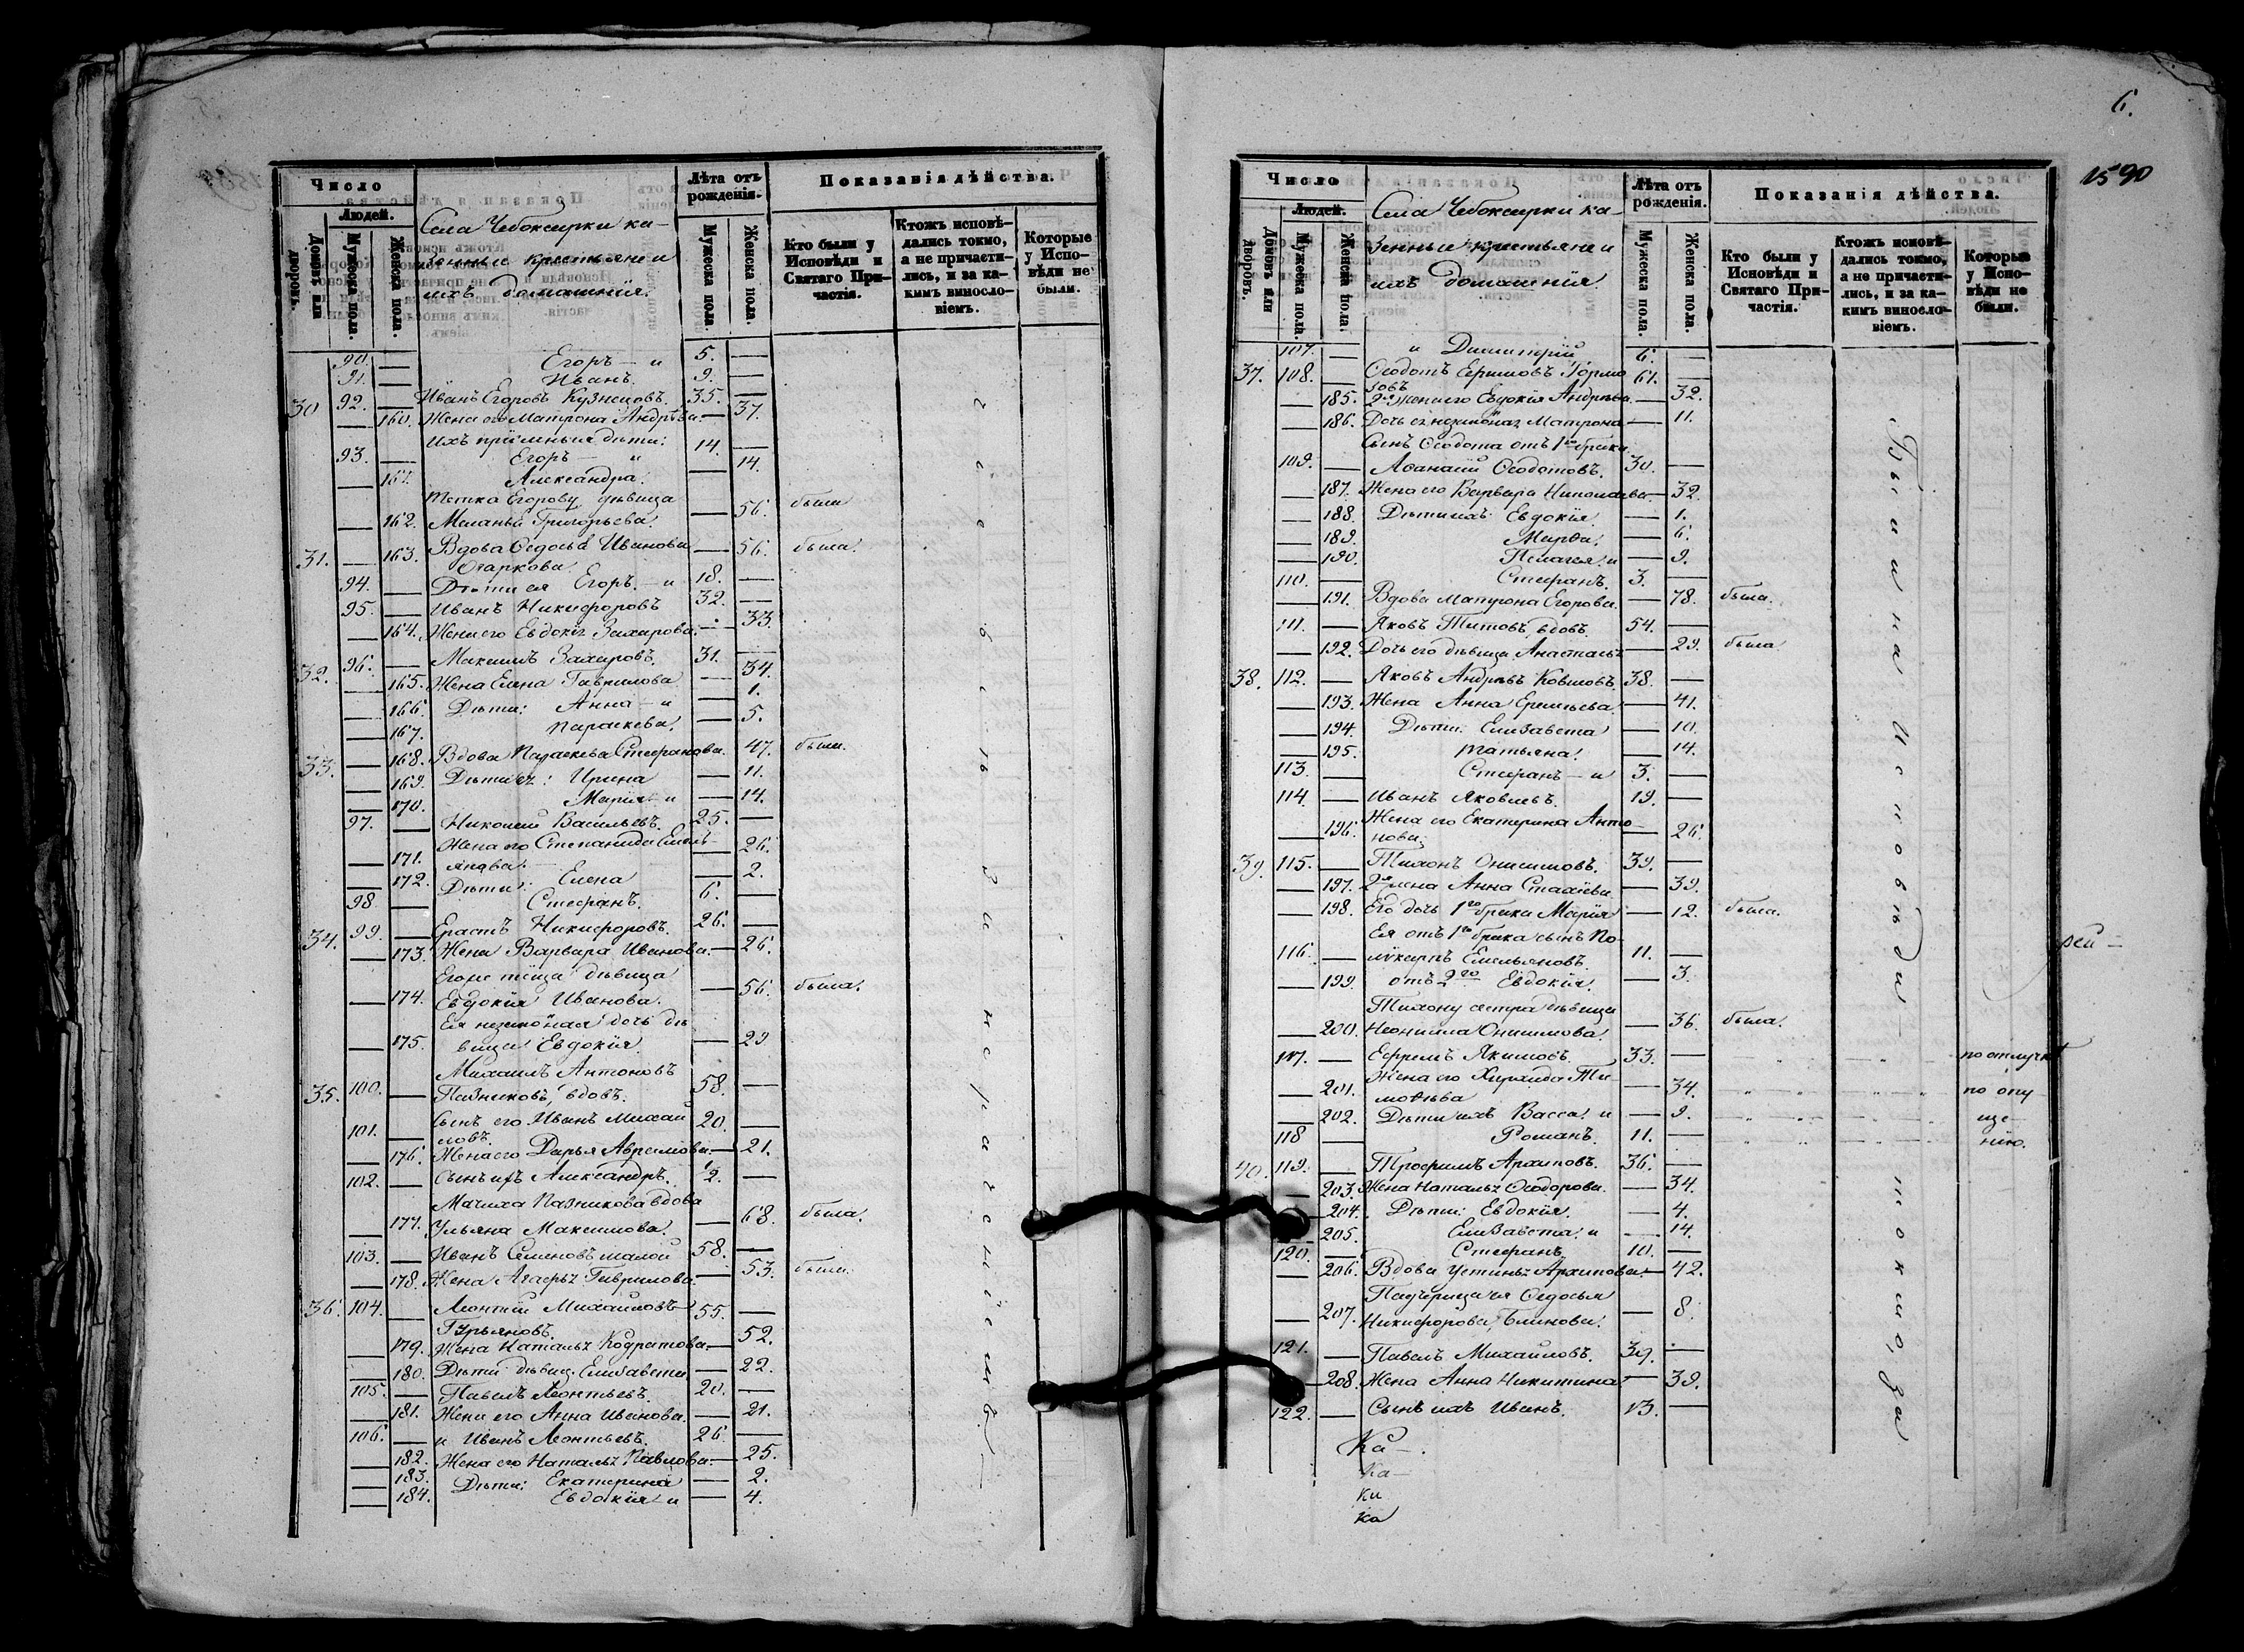 Число
Людей.
Домовъ или дворовъ.
Мужеска пола.
Женска пола.
Села Чебоксарки ка-
зенные крестьяне и
ихъ домашнія.
Лѣта отъ рожденія.
Мужеска пола.
Женска пола.
Показанія дѣйства.
Кто были у Исповѣди и Святаго Причастія.
Ктожъ исповѣдались токмо, а не причастились, и за какимъ винословіемъ.
Которые у Исповѣди не были.
90. — Егоръ — и 5. —
91. — Иванъ. 9. —
30 92. — Иванъ Егоровъ Кузнецовъ. 35. —
— 160. Жена его Матрона Андрѣева. — 37.
Ихъ пріемныя дѣти:
93. — Егоръ — и 14. —
— 161. Александра. — 14.
Тетка Егорову дѣвица
— 162. Меланья Григорьева. — 56. была
31. — 163. Вдова Ѳедосья Иванова — 56. была.
Огаркова
94. — Дѣти ея Егоръ — и 18. —
95. — Иванъ Никифоровъ 32. —
— 164. Жена его Евдокія Захарова. — 33.
32. 96. — Максимъ Захаровъ. 31. —
— 165. Жена Елена Гаврилова — 34.
— 166. Дѣти: Анна — и — 1.
— 167. Параскева. — 5.
33. — 168. Вдова Параскева Стефанова. 47. была.
— 169. Дѣти ея: Ирина — 11.
— 170. Марія — и — 14.
97. — Николай Васильевъ. 25. —
Жена его Степанида Емель-
— 171. янова. — 26.
— 172. Дѣти: Елена — 2.
98. — Стефанъ. 6. —
34. 99. — Ерастъ Никифоровъ. 26. —
— 173. Жена Варвара Иванова. — 26.
Его же тёща дѣвица
— 174. Евдокія Иванова. — 56. была.
Ея незаконная дочь дѣ
— 175. вица Евдокія. — 29
Михаилъ Антоновъ
35. 100. — Пазниковъ, вдовъ. 58. —
Сынъ его Иванъ Михай
101. — ловъ. 20. —
— 176. Жена его Дарья Аврамова. — 21.
102. — Сынъ ихъ Александръ. 1/2. —
Мачиха Пазникова вдова
— 177. Ульяна Максимова. — 68. была.
103. — Иванъ Семеновъ малой 58. —
— 178. Жена Агафья Гаврилова — 53. была.
36. 104. — Леонтій Михайловъ 55. —
Гурьяновъ.
— 179. Жена Наталья Кодратова. — 52.
— 180. Дѣти дѣвиц. Елизавета — 22.
105. — Павелъ Леонтьевъ. 20. —
— 181. Жена его Анна Иванова. — 21.
106. — и Иванъ Леонтьевъ. 26. —
— 182. Жена его Наталья Павлова. — 25.
— 183. Дѣти: Екатерина — 2.
— 184. Евдокія и — 4.
6.
1590
Число
Людей.
Домовъ или дворовъ.
Мужеска пола.
Женска пола.
Села Чебоксарки ка-
зенные крестьяне и
ихъ домашнія.
Лѣта отъ рожденія.
Мужеска пола.
Женска пола.
Показанія дѣйства.
Кто были у Исповѣди и Святаго Причастія.
Ктожъ исповѣдались токмо, а не причастились, и за какимъ винословіемъ.
Которые у Исповѣди не были.
107. — и Димитрій 6. —
37. 108. — Ѳеодотъ Ефимовъ Гормо 61. —
зовъ
— 185. 2я жена его Евдокія Андрѣева. — 32.
— 186. Дочь ея незаконная Матрона — 11.
Сынъ Ѳеодота отъ 1го брака
109. — Аѳанасій Ѳеодотовъ. 30. —
— 187. Жена его Варвара Николаева. — 32.
— 188. Дѣти ихъ: Евдокія. — 1.
— 189. Марѳа. — 6.
— 190. Пелагея и — 9.
110. — Стефанъ. 3. —
— 191. Вдова Матрона Егорова. — 78. была.
111. — Яковъ Титовъ, вдовъ. 54. —
— 192. Дочь его дѣвица Анастасья — 29. была
38. 112. — Яковъ Андрѣевъ Ковшовъ. 38. —
— 193. Жена Анна Ермильева. — 41.
— 194. Дѣти: Елизавета — 10.
— 195. Татьяна. — 14.
113. — Стефанъ — и 3. —
114. — Иванъ Яковлевъ. 19. —
Жена его Екатерина Анто
— 196. нова. — 26.
39. 115. — Тихонъ Онисимовъ. 39. —
— 197. 2я жена Анна Стахіева — 39.
— 198. Его дочь 1го брака Марія — 12. была.
Ея отъ 1го брака сынъ По-
116. — ликарпъ Емельяновъ. 11. —
— 199. отъ 2го Евдокія. — 3.
Тихону сестра дѣвица
— 200. Неонилла Онисимова. — 36. была.
117. — Ефремъ Якимовъ. 33. — по отлучкѣ
Жена его Хиразида Ти-
— 201. моѳѣева — 34. по опу
— 202. Дѣти ихъ Васса. и — 9. ще-
118 — Романъ. 11. — нію.
40. 119. — Трофимъ Архиповъ. 36. —
— 203. Жена Наталья Ѳеодорова. — 34.
— 204. Дѣти: Евдокія. — 4.
— 205. Елизавета. и — 14.
120. — Стефанъ 10. —
— 206. Вдова Устинья Архипова. — 42.
Падчерица ея Ѳедосья
— 207. Никифорова, Блинова. — 8.
121. — Павелъ Михайловъ. 39. —
— 208. Жена Анна Никитина — 39.
122. — Сынъ ихъ Иванъ. 13. —
Были на Исповѣди токмо, за
Ка-.
Ка-
ка
ка